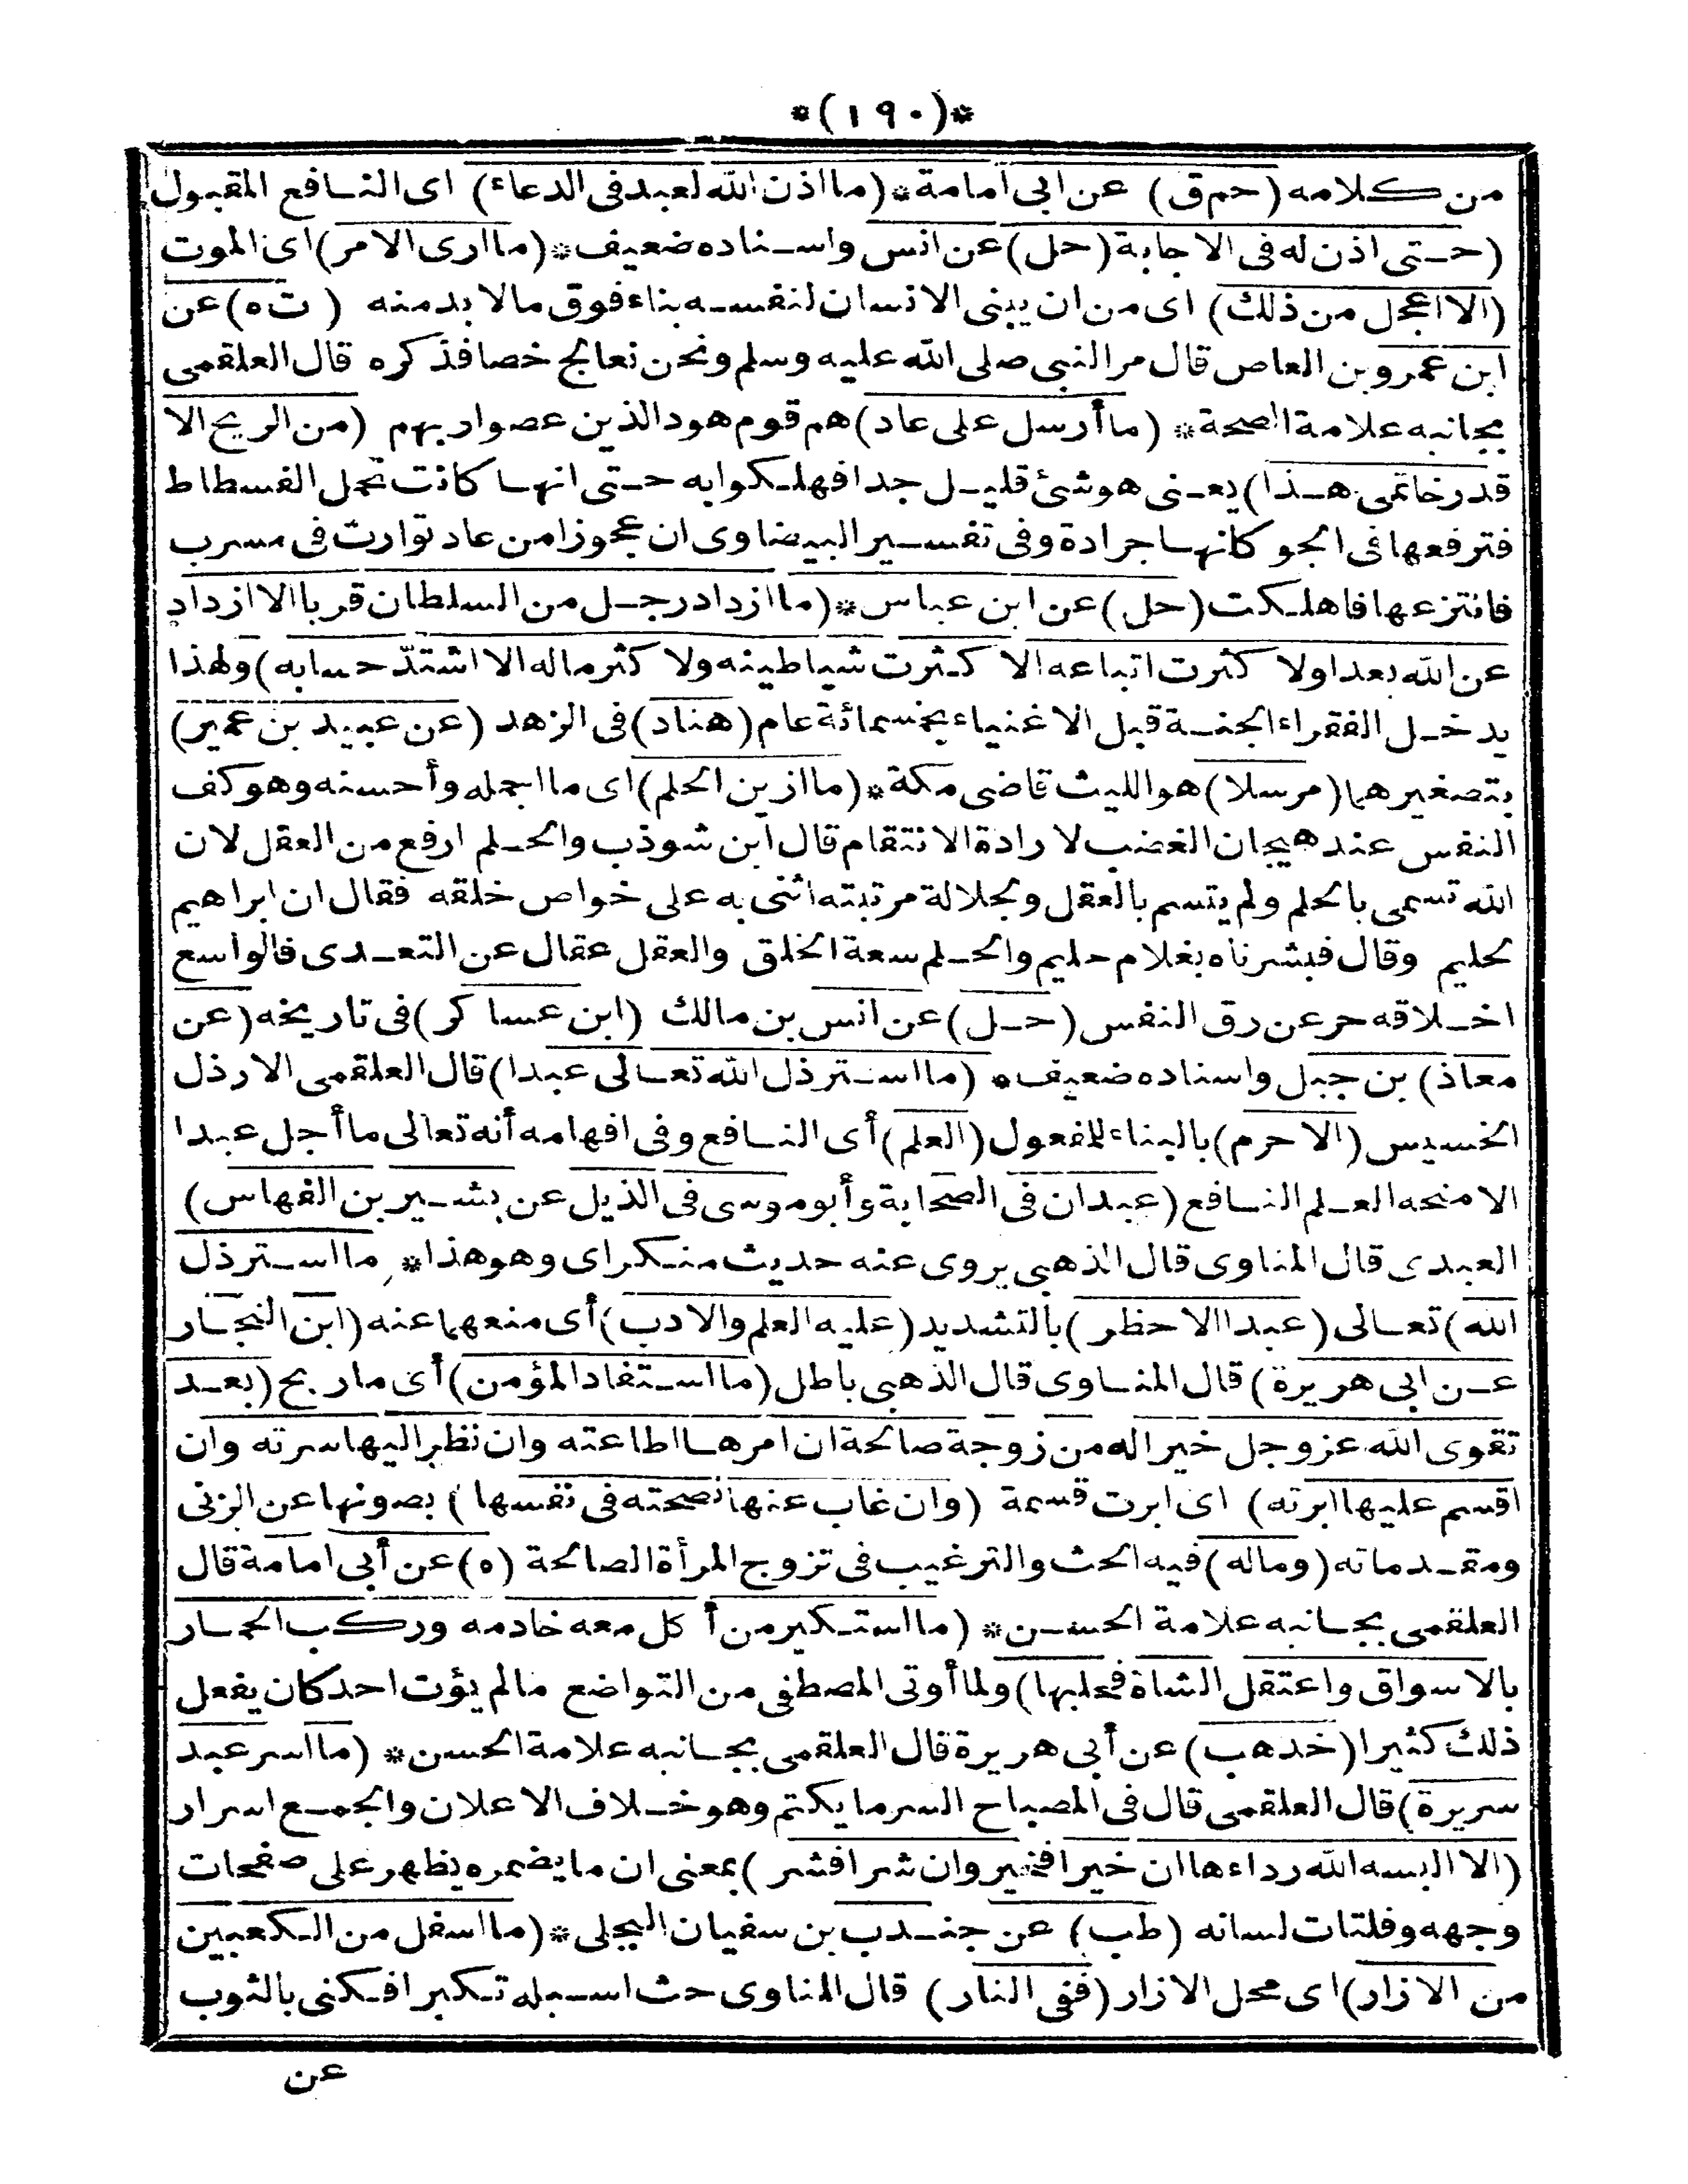 *(١٩٠)*
من كلامه (حم ق) عن ابى امامة * (ما اذن الله لعبد فى الدعاء) اى النافع المقبول
(حتى اذن له فى الاجابة (حل) عن انس واسناده ضعيف * (ما ارى الامر) اى الموت
(الا اعجل من ذلك) اى من ان يبنى الانسان لنفسه بناء فوق ما لا بد منه (ت ه) عن
ابن عمرو بن العاص قال مر النبى صلى الله عليه وسلم ونحن نعالج خصا فذكره قال العلقمى
بجانبه علامة الصحة * (ما أرسل على عاد) هم قوم هود الذين عصوا ربهم (من الريح الا
قدر خاتمى هذا) يعنى هو شئ قليل جدا فهلكوا به حتى انها كانت تحمل الفسطاط
فترفعها فى الجو كانها جرادة وفى تفسير البيضاوى ان عجوزا من عاد توارت فى مسرب
فانتزعها فاهلكت (حل) عن ابن عباس * (ما ازداد رجل من السلطان قربا الا ازداد
عن الله بعدا ولا كثرت اتباعه الا كثرت شياطينه ولا كثر ماله الا اشتدّ حسابه) ولهذا
يدخل الفقراء الجنة قبل الاغنياء بخمسمائة عام (هناد) فى الزهد (عن عبيد بن عمير)
بتصغيرهما (مرسلا) هو الليث قاضى مكة * (ما ازين الحلم) اى ما اجمله وأحسنه وهو كف
النفس عند هيجان الغضب لارادة الانتقام قال ابن شوذب والحلم ارفع من العقل لان
الله تسمى بالحلم ولم يتسم بالعقل ولجلالة مرتبته اثنى به على خواص خلقه فقال ان ابراهيم
لحليم وقال فبشرناه بغلام حليم والحلم سعة الخلق والعقل عقال عن التعدى فالواسع
اخلاقه حر عن رق النفس (حل) عن انس بن مالك (ابن عساكر) فى تاريخه (عن
معاذ) بن جبل واسناده ضعيف * (ما استرذل الله تعالى عبدا) قال العلقمى الارذل
الخسيس (الا حرم) بالبناء للمفعول (العلم) أى النافع وفى افهامه أنه تعالى ما أجل عبدا
الا منحه العلم النافع (عبدان فى الصحابة وأبو موسى فى الذيل عن بشير بن النهاس)
العبدى قال المناوى قال الذهبى يروى عنه حديث منكر اى وهو هذا * ما استرذل
الله) تعالى (عبدا الا حظر) بالتشديد (عليه العلم والادب) أى منعهما عنه (ابن النجار
عن ابى هريرة) قال المناوى قال الذهبى باطل (ما استفاد المؤمن) أى ما ربح (بعد
تقوى الله عز وجل خيرا له من زوجة صالحة ان امرها اطاعته وان نظر اليها سرته وان
اقسم عليها ابرته) اى ابرت قسمة (وان غاب عنها نصحته فى نفسها) بصونها عن الزنى
ومقدماته (وماله) فيه الحث والترغيب فى تزوج المرأة الصالحة (ه) عن أبى امامة قال
العلقمى بجانبه علامة الحسن * (ما استكبر من أكل معه خادمه وركب الحمار
بالاسواق واعتقل الشاة فحلبها) ولما أوتى المصطفى من التواضع ما لم يؤت احد كان يفعل
ذلك كثيرا (خد هب) عن أبى هريرة قال العلقمى بجانبه علامة الحسن * (ما اسر عبد
سريرة) قال العلقمى قال فى المصباح السر ما يكتم وهو خلاف الاعلان والجمع اسرار
(الا البسه الله رداءها ان خيرا فخير وان شرا فشر) بمعنى ان ما يضمره يظهر على صفحات
وجهه وفلتات لسانه (طب) عن جندب بن سفيان البجلى * (ما اسفل من الكعبين
من الازار) اى محل الازار (ففى النار) قال المناوى حث اسبله تكبرا فكنى بالثوب
عن